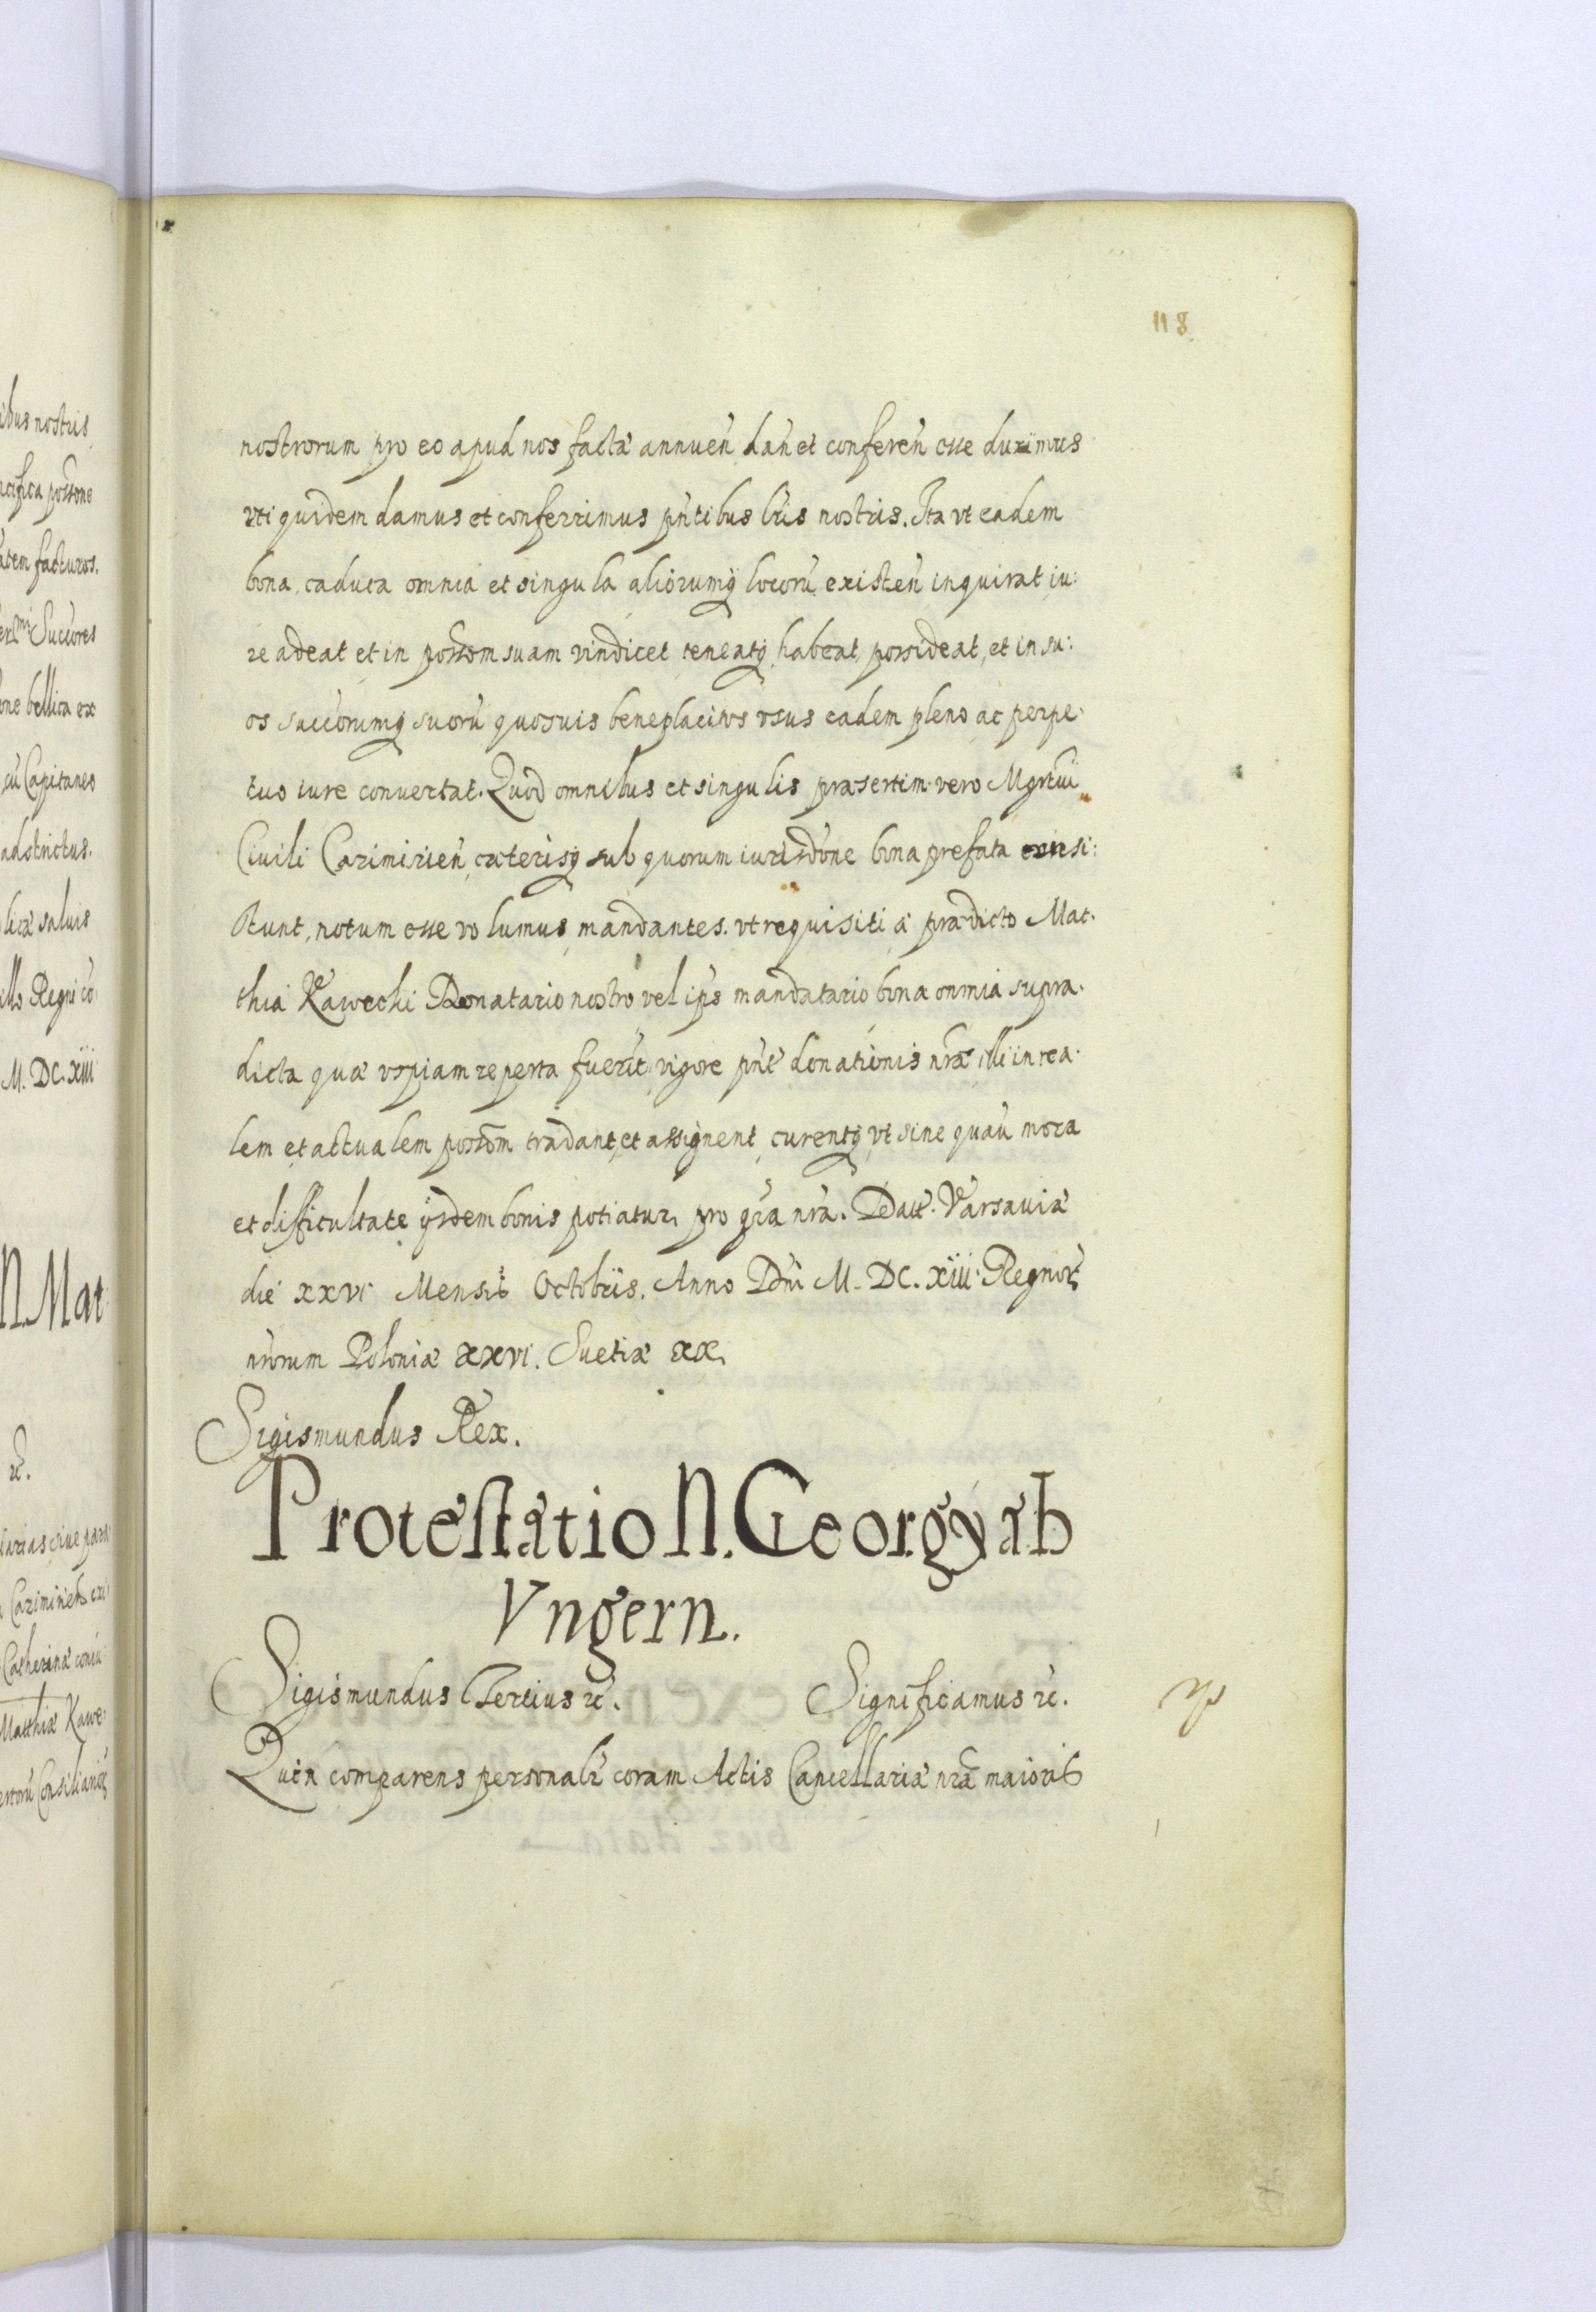 118
nostrorum pro eo apud nos factã annueñ dañ et confereñ esse duximus
vti quidem damus et conferrimus pñtibus lr̃is nostris. Ita vt eadem
bona caduca omnia et singula aliorumq locorũ existeñ inquirat iu:
re adeat et in possom̃ suam vindicet teneatq habeat possideat, et in su:
os succorumq suorũ quosuis beneplacitos vsus eadem pleno ac perpe:
tuo iure conuertat. Quod omnibus et singulis præsertim vero Mgrtui
Ciuili Casimirieñ cæterisq sub quorum iurisdõne bona prefata
stunt, notum esse volumus mandantes. vt requisiti à prædicto Mat:
thia Kawechi Donatario nostro vel ip̃s mandatario bona omnia supra:
dicta quæ vspiam reperta fuerĩt vigore pñt donationis nr̃æ illi in rea:
lem et actualem possom̃ tradant, et assignent, curentq vt sine quaũ mora
et difficultate ijsdem bonis potiatur, pro gr̃a nr̃a. Datt. Varsauiæ
die xxvi Mensis Octobris. Anno Dñi M. DC. XIII. Regnor̃
nr̃orum Poloniæ XXVI. Suetiæ XX.
Sigismundus Rex.
Protestatio N. Georgy ab
Vngern.
Sigismundus Tertius etc. Significamus etc.
Quia comparens personalr̃ coram Actis Cancellariæ nr̃æ maioris
ibus nostris
acifica possone
atem facturos.
Succores
one bellica ex
cũ Capitaneo
adstrictus.
licæ saluis
illo Regni cõ
M. DC. XIII
N. Mat
etc.
Catherinæ coniu
Matthiæ Kawe: